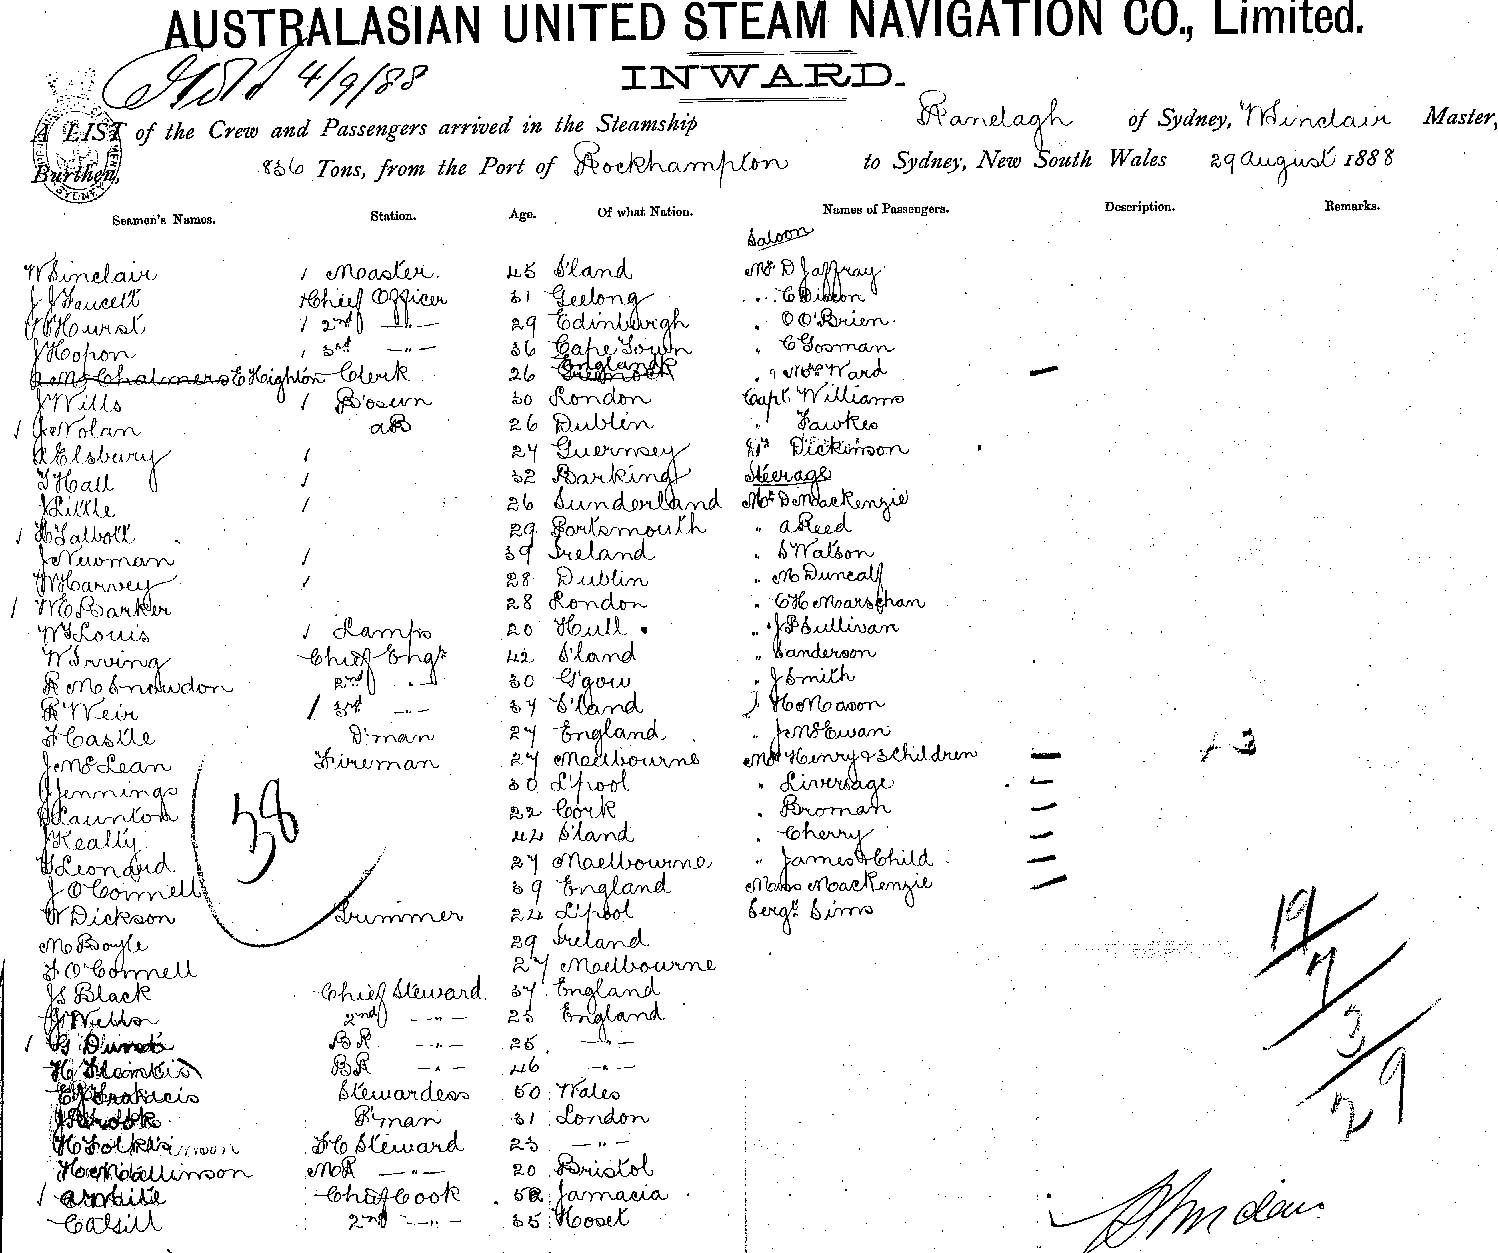 AUSTRALASIAN UNITED STEAM NAVIGATION CO., Limited.
4/9/88 INWARD.
A LIST of the Crew and Passengers arrived in the Steamship Ranelagh of Sydney, W Sinclair Master,
Burthen, 836 Tons, from the Port of Rockhampton to Sydney, New South Wales 29 August 1888
Seamen's Names. Station. Age. Of what Nation. Names of Passengers. Description. Remarks.
Saloon
W Sinclair 1 Master. 45 S'land Mr D Jaffray
J J Faucett 1 Chief Officer 31 Geelong " C Dixon
Hurst 1 2nd -"- 29 Edinburgh " O O'Brien
J Hopon 1 3rd -"- 36 Cape Town " C Gosman
Mc Chalmers E Heighton Clerk 26 England " Mrs Ward —
J Wills 1 Bosun 30 London Capt. Williams
1 J Nolan AB 26 Dublin " Fawkes
A Elsbury 1 27 Guernsey Dickinson
T Hall 1 32 Barking Steerage
J Little 1 26 Sunderland Mr D Mackenzie
1 H Talbott 29 Portsmouth " A Reed
J Newman 1 39 Ireland " S Watson
W Harvey 1 28 Dublin " M Duncalf
1 W E Barker 28 London " C H Marsghan
W Louis 1 Lamps 20 Hull " J P Sullivan
W Irving Chief Engr 42 S'land " Sanderson
R M Snowdon 2nd -"- 30 G'gow " J Smith
R Weir 1 3rd -"- 37 S'land " H Mason
F Castle D'man 27 England " J McEwan
J McLean Fireman 27 Melbourne Mrs Henry & 3 Children — + 3
J Jennings 30 L'pool " Liversage —
Staunton 38 22 Cork " Broman —
J Kealty 44 S'land " Cherry —
Leonard 27 Melbourne " James & Child —
J O'Connell 39 England Miss Mackenzie —
W Dickson Trimmer 24 L'pool Sergt Sims
M Boyle 29 Ireland
F O'Connell 27 Melbourne
J S Black Chief Steward 37 England
J Wells 2nd -"- 23 England
1 BR -"- 25 -"-
H BR -"- 46 -"-
Francis Stewardess 50 Wales
J Brook P'man 31 London
H F C Steward 23 -"-
H Mallinson MR -"- 20 Bristol
1 A White Chief Cook 52 Jamacia
Cahill 2nd -"- 35 Hoset
19
7
3
29